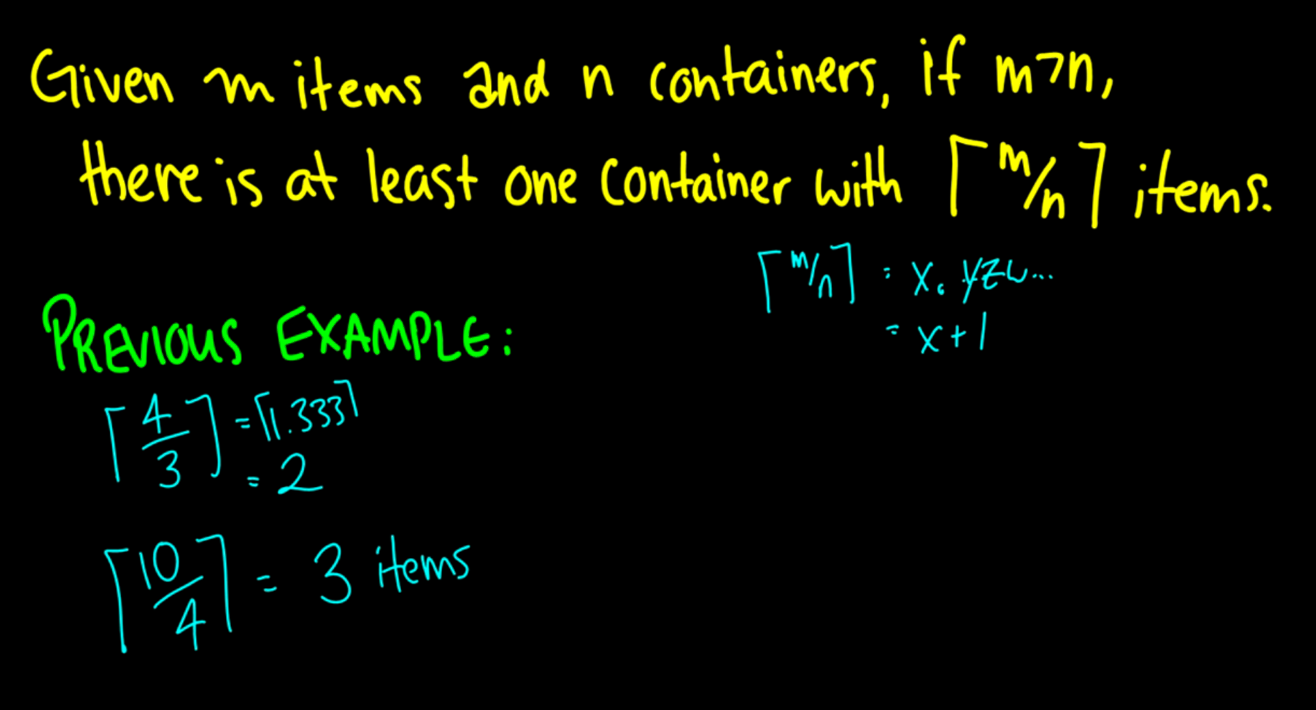 Given m items and n containers, if m>n,
there is at least one container with ⌈m/n⌉ items.
⌈m/n⌉ = x.yzw...
= x+1
PREVIOUS EXAMPLE:
⌈4/3⌉ = ⌈1.333⌉
= 2
⌈10/4⌉ = 3 items